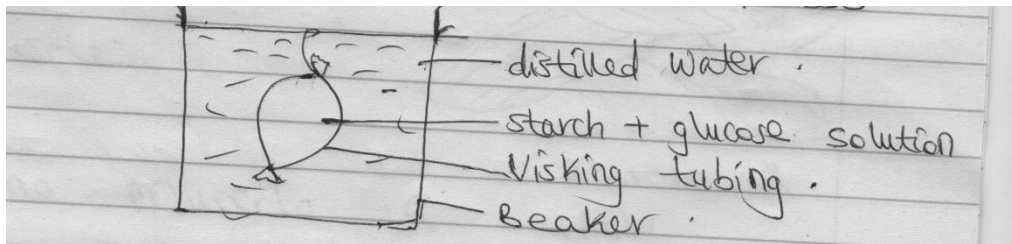 distilled water.
starch + glucose solution
Visking tubing.
Beaker.